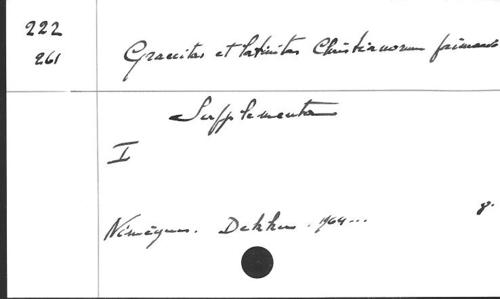 222
261
Graecitas et latinitas Christianorum primaeva
Supplementa
I
Nimègue. Dekker. 1964...
8.